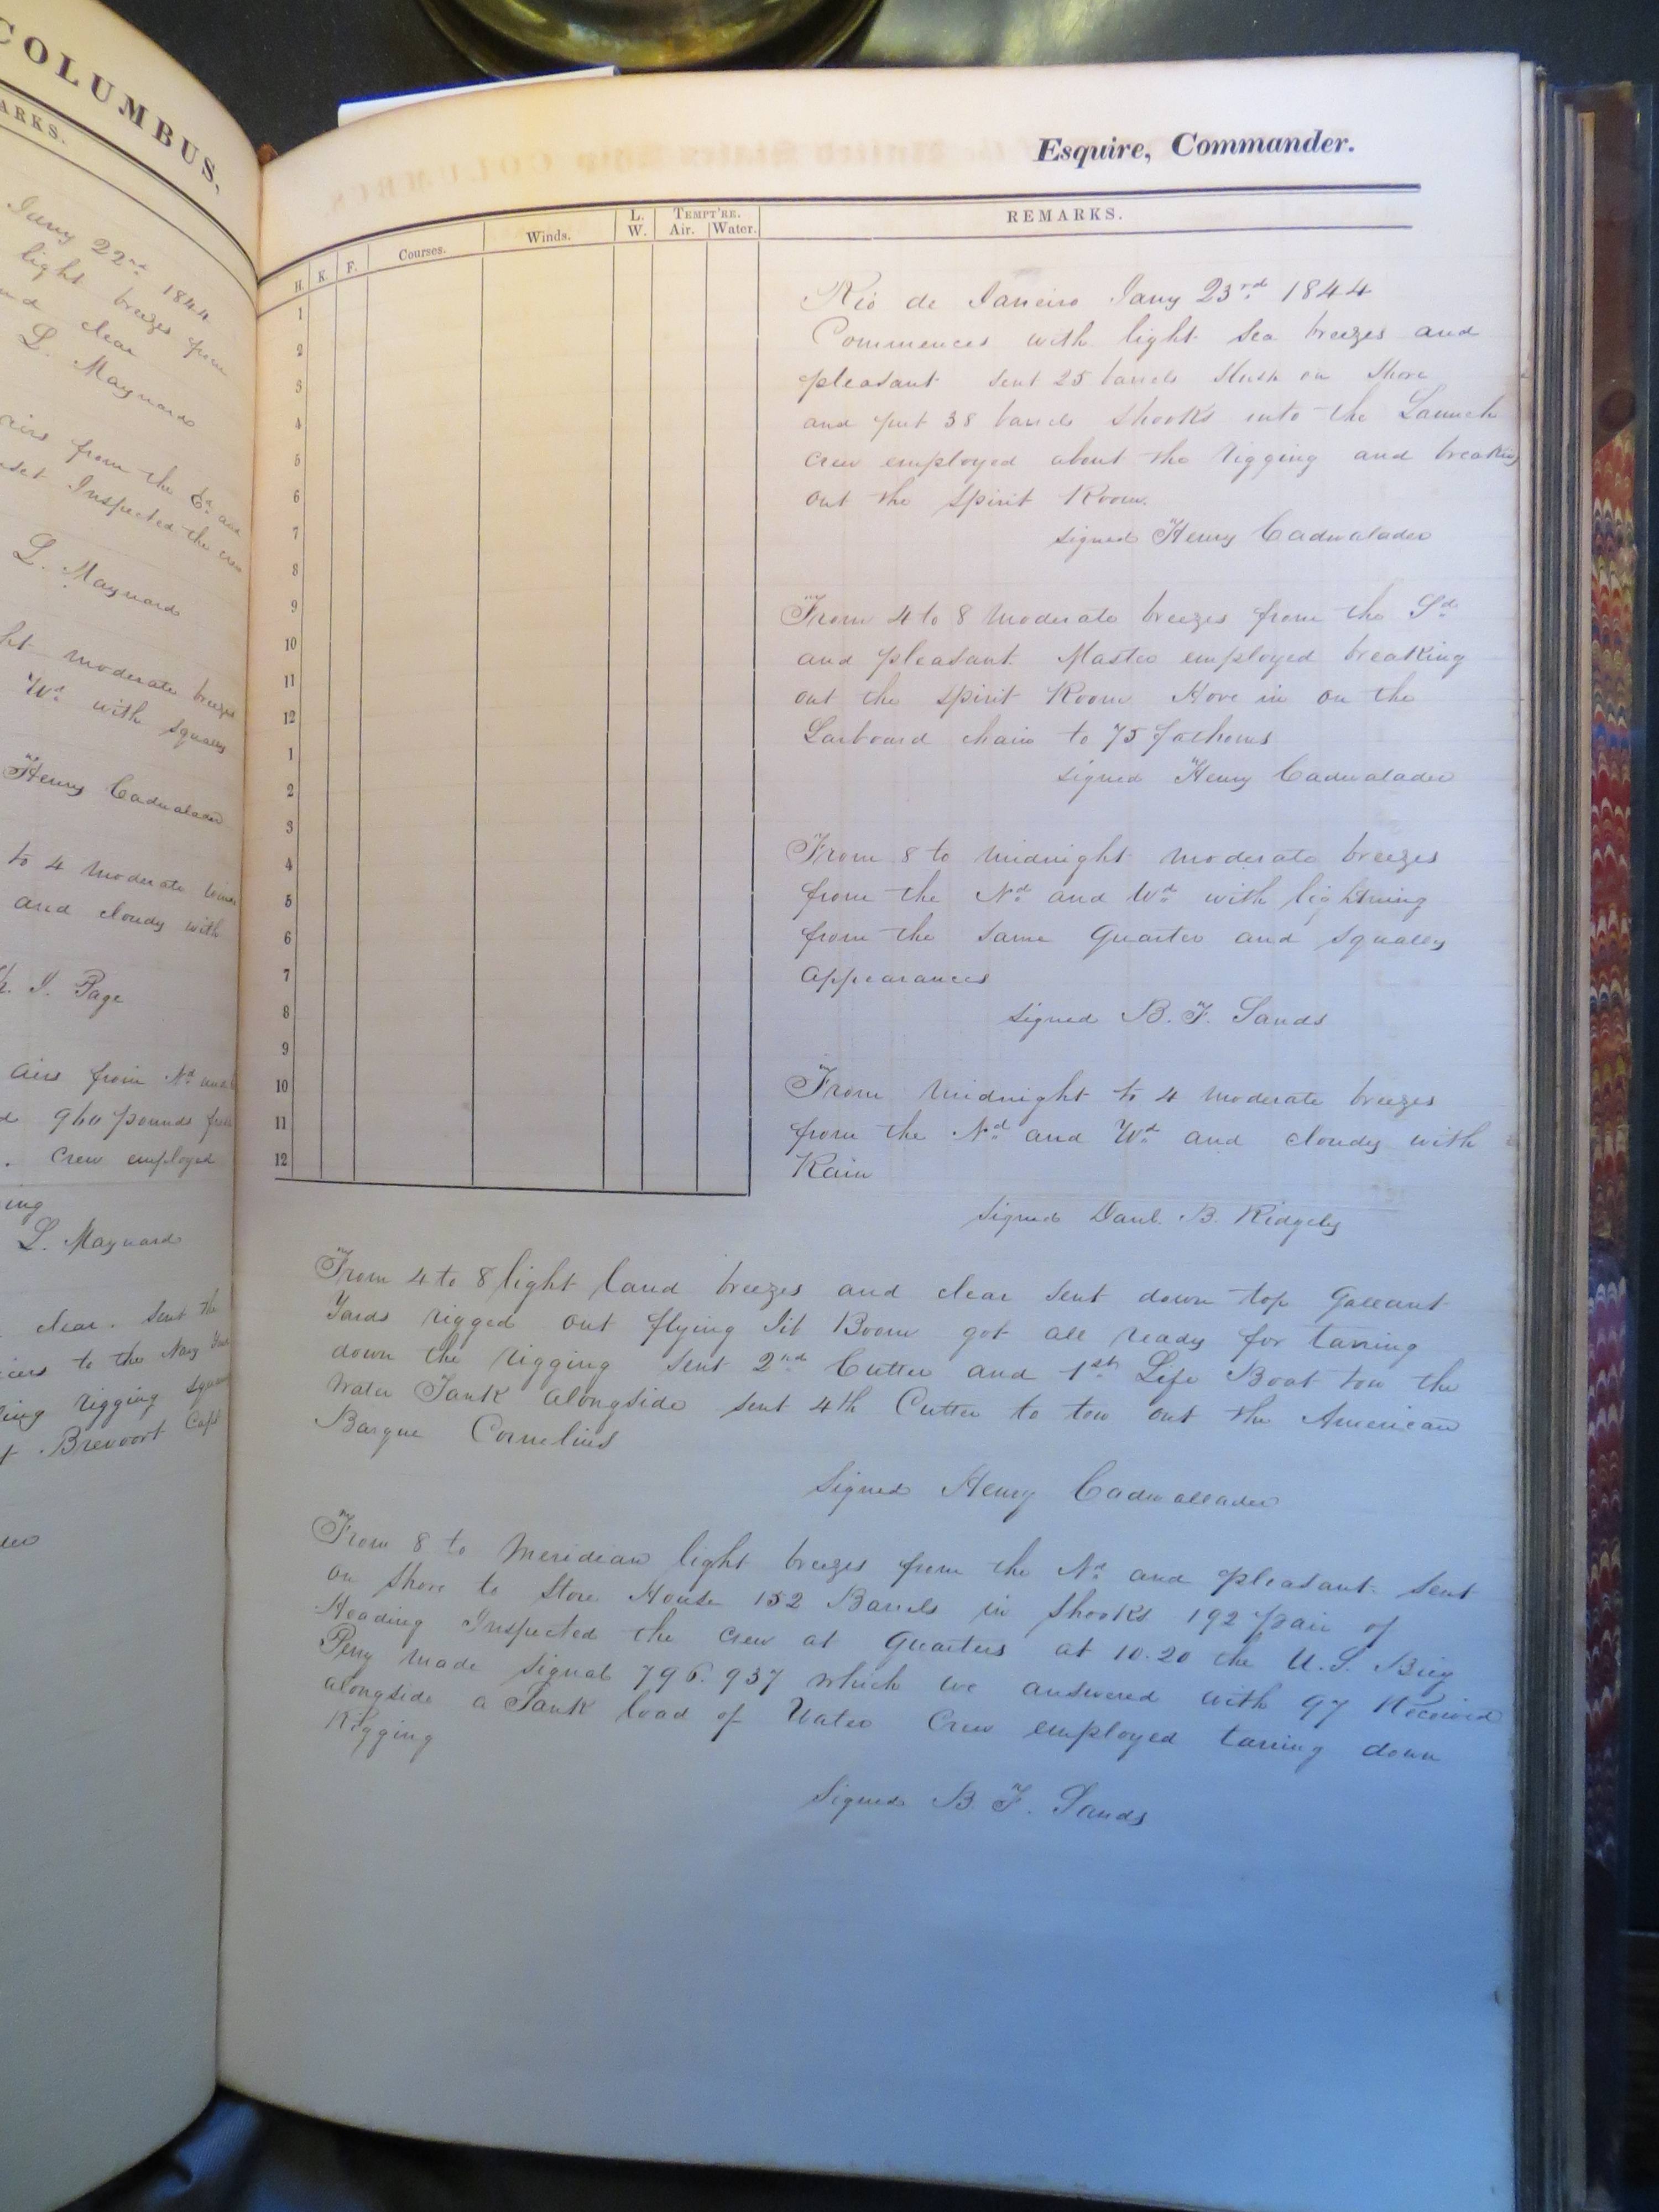 COLUMBUS,
ARKS.
Jany 22nd 1844
light breezes from
and clear
L. Maynard
airs from the Ed and
Inspected the crew
L. Maynard
moderate breezes
Wd with squally
Henry Cadwalader
to 4 moderate
and cloudy with
J. Page
airs from Nd and
960 pounds
. Crew employed
ing
L. Maynard
clear. Sent the
to the Navy Yard
rigging
Brevoort
Esquire, Commander.
H. K. F. Courses. Winds. L. W. TEMPT'RE. Air. Water. REMARKS.
1
2
3
4
5
6
7
8
9
10
11
12
1
2
3
4
5
6
7
8
9
10
11
12
Rio de Janeiro Jany 23rd 1844
Commences with light Sea breezes and
pleasant sent 25 barrels Slush on Shore
and put 38 barrels Shooks into the Launch
Crew employed about the Rigging and breaking
out the Spirit Room.
Signed Henry Cadwalader
From 4 to 8 Moderate breezes from the Sd
and pleasant. Master employed breaking
out the Spirit Room Hove in on the
Larboard chain to 75 fathoms
Signed Henry Cadwalader
From 8 to Midnight Moderate breezes
from the Nd and Wd with lightning
from the Same Quarter and Squally
appearances
Signed B. F. Sands
From Midnight to 4 Moderate breezes
from the Nd and Wd and cloudy with
Rain
Signed Danl. B. Ridgely
From 4 to 8 light land breezes and clear Sent down top Gallant
Yards rigged out flying Jib Boom got all ready for tarring
down the rigging Sent 2nd Cutter and 1st Life Boat tow the
Water Tank alongside Sent 4th Cutter to tow out the American
Barque Cornelius
Signed Henry Cadwallader
From 8 to Meridian light breezes from the Nd and pleasant. Sent
on Shore to Store House 152 Barrels in Shooks 192 pair of
Heading Inspected the Crew at Quarters at 10.20 the U.S. Brig
Perry made Signal 796. 937 which we answered with 97 Received
alongside a Tank load of Water Crew employed tarring down
Rigging
Signed B. F. Sands